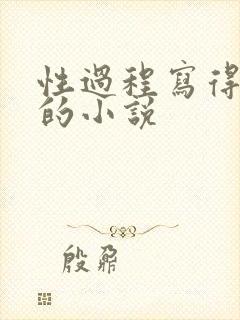 性過程寫得
的小說
殷鼐